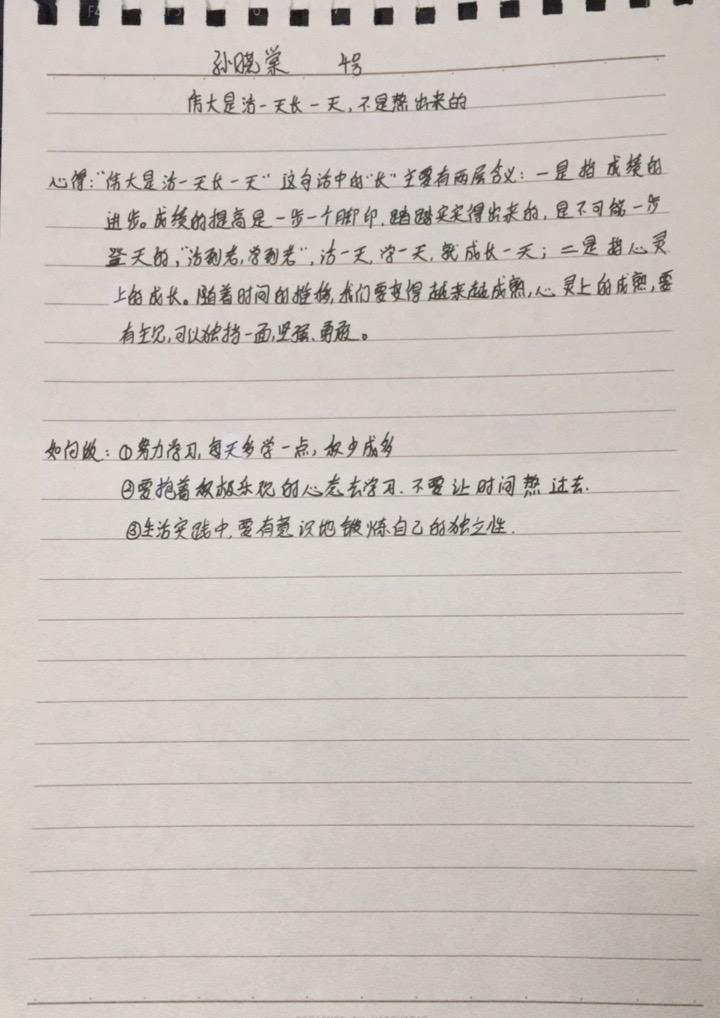 孙晓棠 4号
伟大是活一天长一天,不是熬出来的
心得:"伟大是活一天长一天"这句话中的"长"主要有两层含义:一是指成绩的
进步。成绩的提高是一步一个脚印,踏踏实实得出来的,是不可能一步
登天的,"活到老,学到老",活一天,学一天,就成长一天;二是指心灵
上的成长。随着时间的推移,我们要变得越来越成熟,心灵上的成熟,要
有主见,可以独挡一面,坚强、勇敢。
如何做:①努力学习,每天多学一点,积少成多
②要抱着积极乐观的心态去学习.不要让时间熬过去.
③生活实践中,要有意识地锻炼自己的独立性.